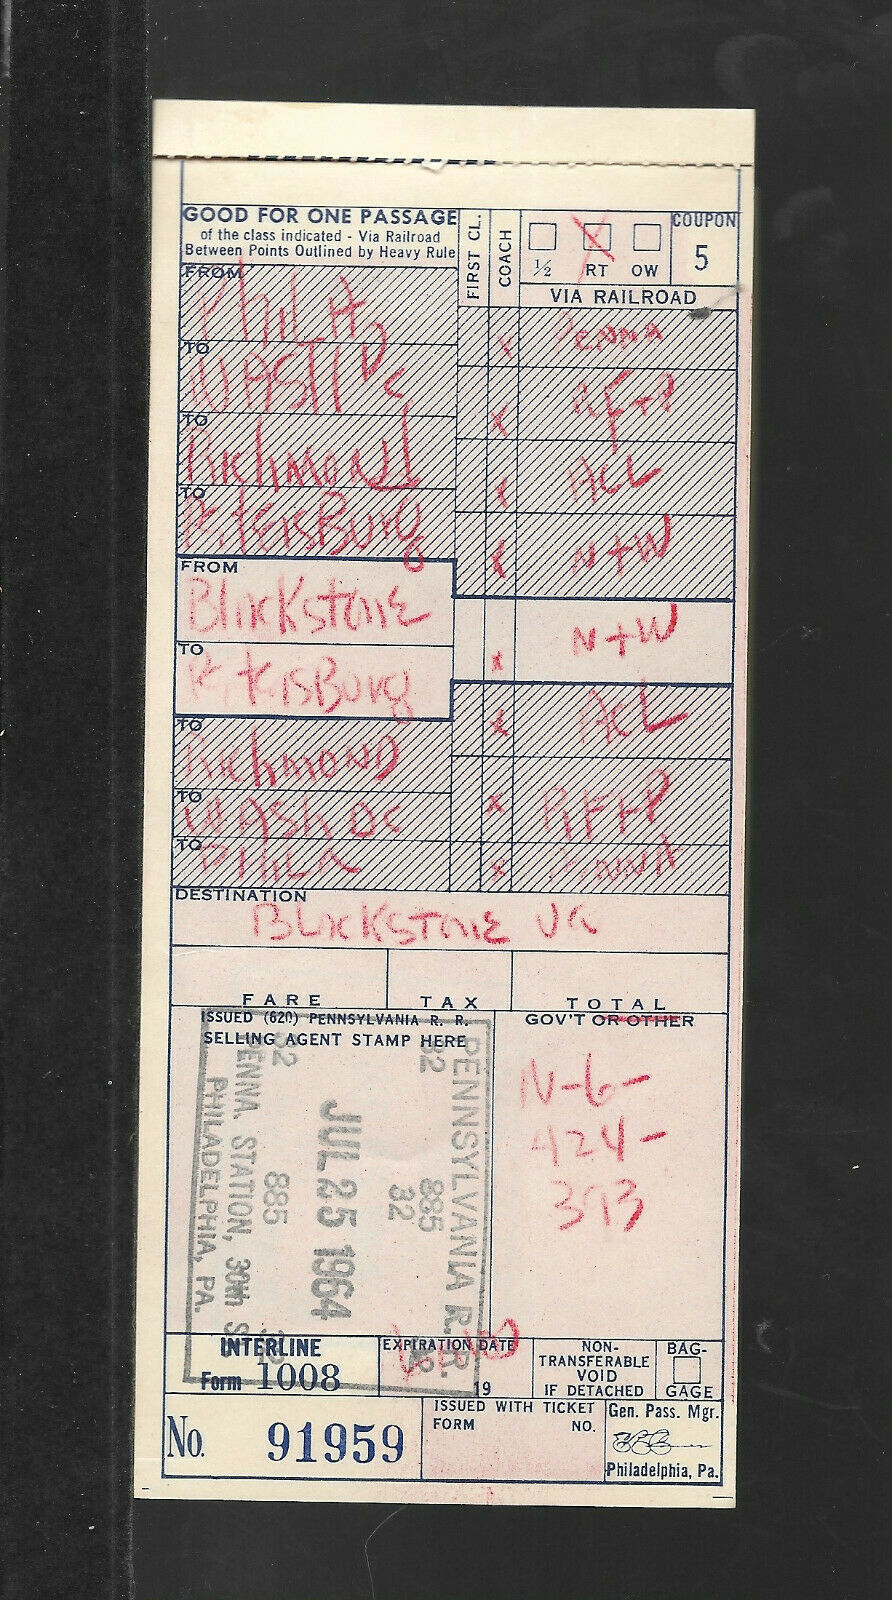 GOOD FOR ONE PASSAGE
of the class indicated - Via Railroad
Between Points Outlined by Heavy Rule
FIRST CL.
COACH
½ RT OW
COUPON
5
VIA RAILROAD
FROM
PhILA,
x PENNA
TO
WASH DC
x RF+P
TO
Richmond
x ACL
TO
PETERSBurg
x N+W
FROM
BlackstonE
x N+W
TO
PETERSBurg
x ACL
TO
RichmOND
x RF+P
TO
WAsh DC
x PENNA
TO
Phila
DESTINATION
BlackstonE Va
FARE TAX TOTAL
ISSUED (620) PENNSYLVANIA R. R.
SELLING AGENT STAMP HERE
GOV'T OR OTHER
N-6-
424-
393
PENNSYLVANIA R.R.
32
885
32
JUL 25 1964
32
885
PENNA. STATION, 30th S
PHILADELPHIA, PA.
INTERLINE
Form 1008
EXPIRATION DATE
19
NON-
TRANSFERABLE
VOID
IF DETACHED
BAG-
GAGE
No. 91959
ISSUED WITH TICKET
FORM NO.
Gen. Pass. Mgr.
Philadelphia, Pa.